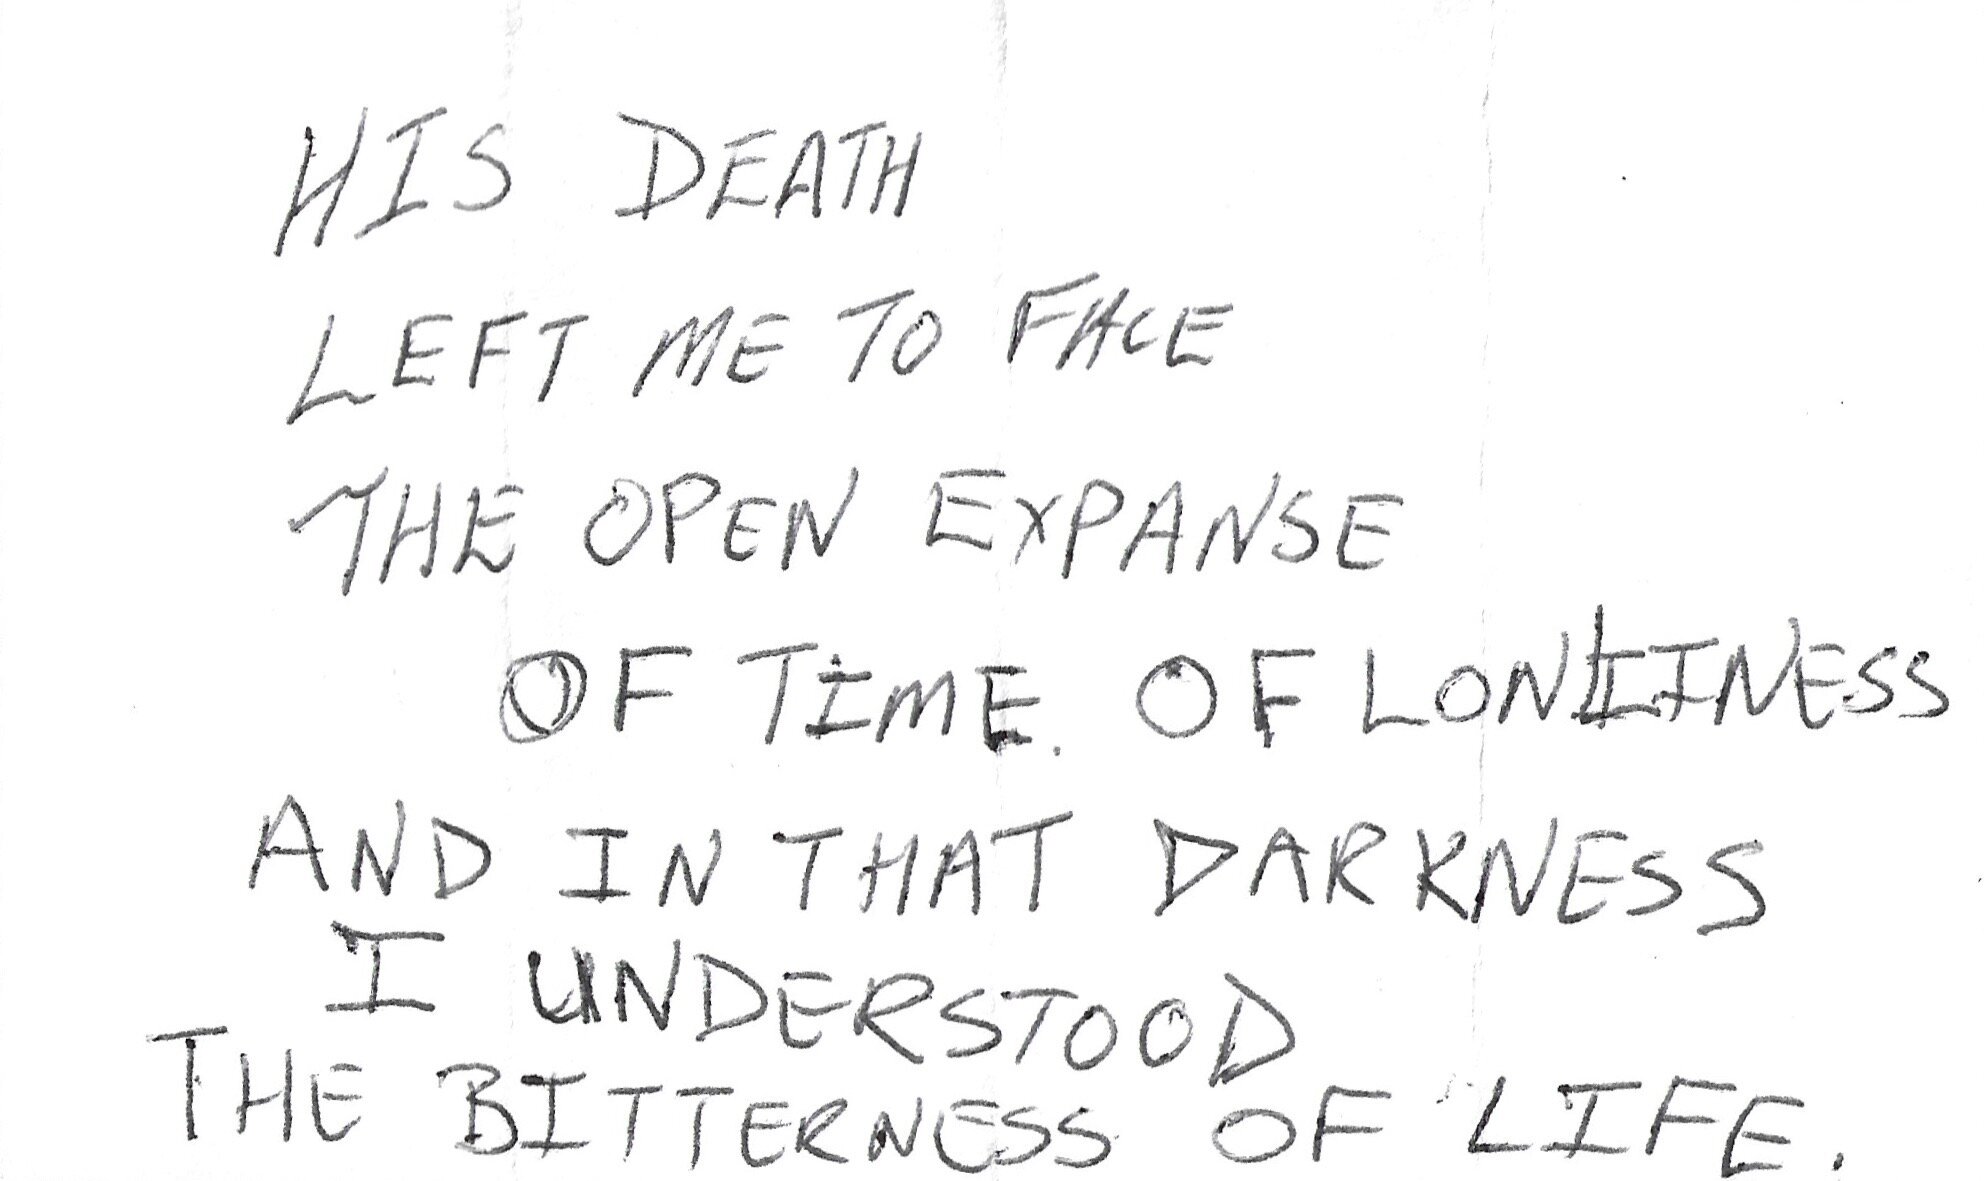 HIS DEATH
LEFT ME TO FACE
THE OPEN EXPANSE
OF TIME. OF LONLINESS
AND IN THAT DARKNESS
I UNDERSTOOD
THE BITTERNESS OF LIFE.